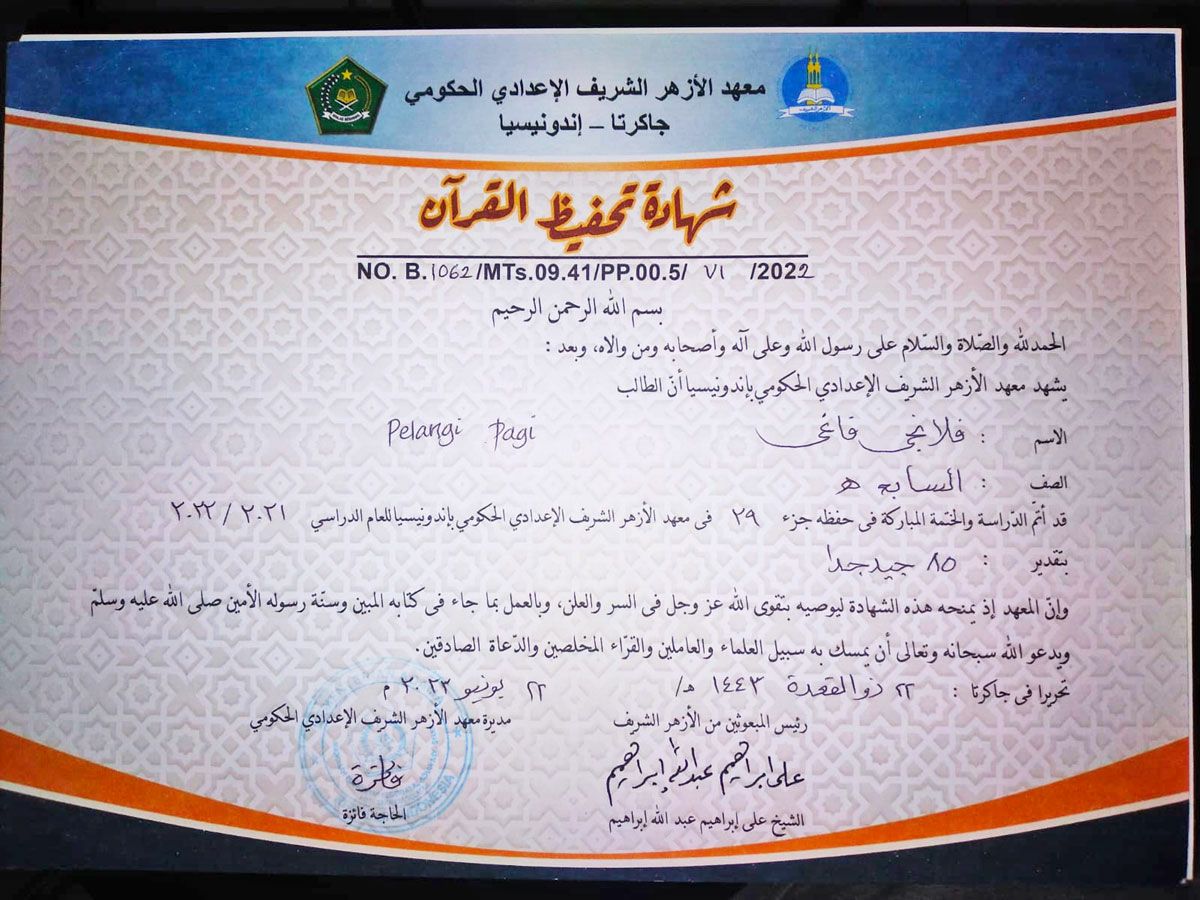 معهد الأزهر الشريف الإعدادي الحكومي
جاكرتا – إندونيسيا
شهادة تحفيظ القرآن
NO. B.1062/MTs.09.41/PP.00.5/ VI /2022
بسم الله الرحمن الرحيم
الحمدلله والصّلاة والسّلام على رسول الله وعلى آله وأصحابه ومن والاه، وبعد :
يشهد معهد الأزهر الشريف الإعدادي الحكومي بإندونيسيا أنّ الطالب
الاسم : فلانجى فاغى Pelangi Pagi
الصف : السابع ه
قد أتمّ الدّراسة والختمة المباركة فى حفظه جزء ٢٩ فى معهد الأزهر الشريف الإعدادي الحكومي بإندونيسيا للعام الدراسي ٢٠٢١ / ٢٠٢٢
بتقدير : ٨٥ جيد جدا
وإنّ المعهد إذ يمنحه هذه الشهادة ليوصيه بتقوى الله عز وجل فى السر والعلن، وبالعمل بما جاء فى كتابه المبين وسنّة رسوله الأمين صلى الله عليه وسلّم
ويدعو الله سبحانه وتعالى أن يمسك به سبيل العلماء والعاملين والقرّاء المخلصين والدّعاة الصادقين.
تحريرا فى جاكرتا : ٢٢ ذو القعدة ١٤٤٣ هـ/ ٢٢ يونيو ٢٠٢٢ م
رئيس المبعوثين من الأزهر الشريف
مديرة معهد الأزهر الشريف الإعدادي الحكومي
على ابراهيم عبدالله إبراهيم
فائزة
الشيخ على إبراهيم عبد الله إبراهيم
الحاجة فائزة